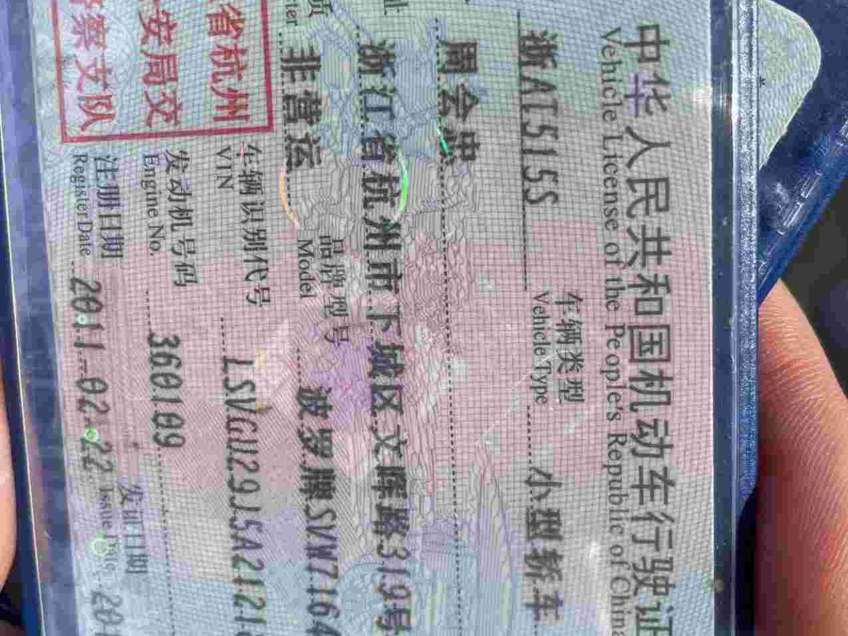 中华人民共和国机动车行驶证
Vehicle License of the People's Republic of China
浙AT515S
车辆类型
Vehicle Type
小型轿车
周会忠
址
浙江省杭州市下城区文晖路319号
质
非营运
品牌型号
Model
波罗牌SVW7164
省杭州
安局交
警察支队
车辆识别代号
VIN
LSVGU29J5A2121
发动机号码
Engine No.
360109
注册日期
Register Date
2011-02-22
发证日期
Issue Date
201